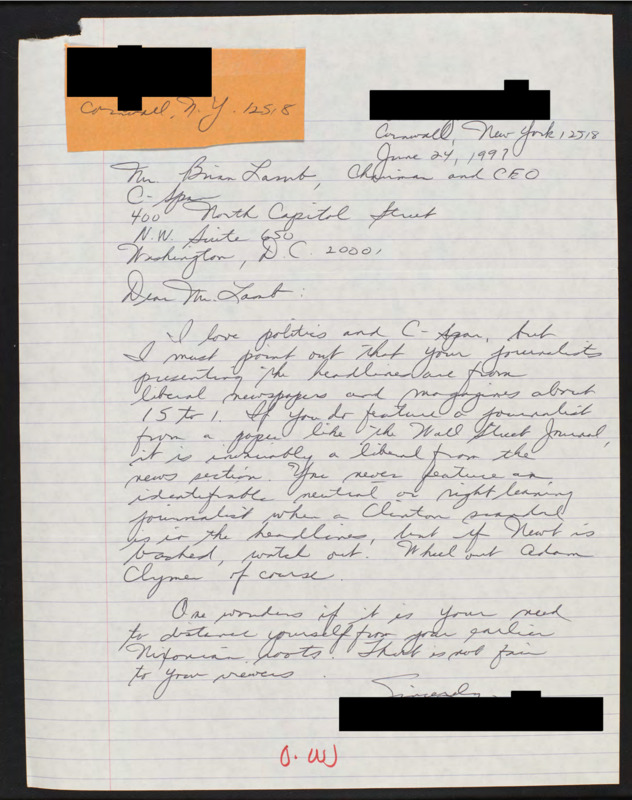 Cornwall, N.Y. 12518
Cornwall, New York 12518
June 24, 1997
Mr. Brian Lamb, Chairman and CEO
C-Span
400 North Capitol Street
N.W. Suite 650
Washington, D.C. 20001
Dear Mr. Lamb:
I love politics and C-Span, but
I must point out that your journalists
presenting the headlines are from
liberal newspapers and magazines about
15 to 1. If you do feature a journalist
from a paper like the Wall Street Journal,
it is invariably a liberal from the
news section. You never feature an
identifiable neutral or right leaning
journalist when a Clinton scandal
is in the headlines, but if Newt is
bashed, watch out. Wheel out Adam
Clymer of course.
One wonders if it is your need
to distance yourself from your earlier
Nixonian roots. That is not fair
to your viewers.
Sincerely,